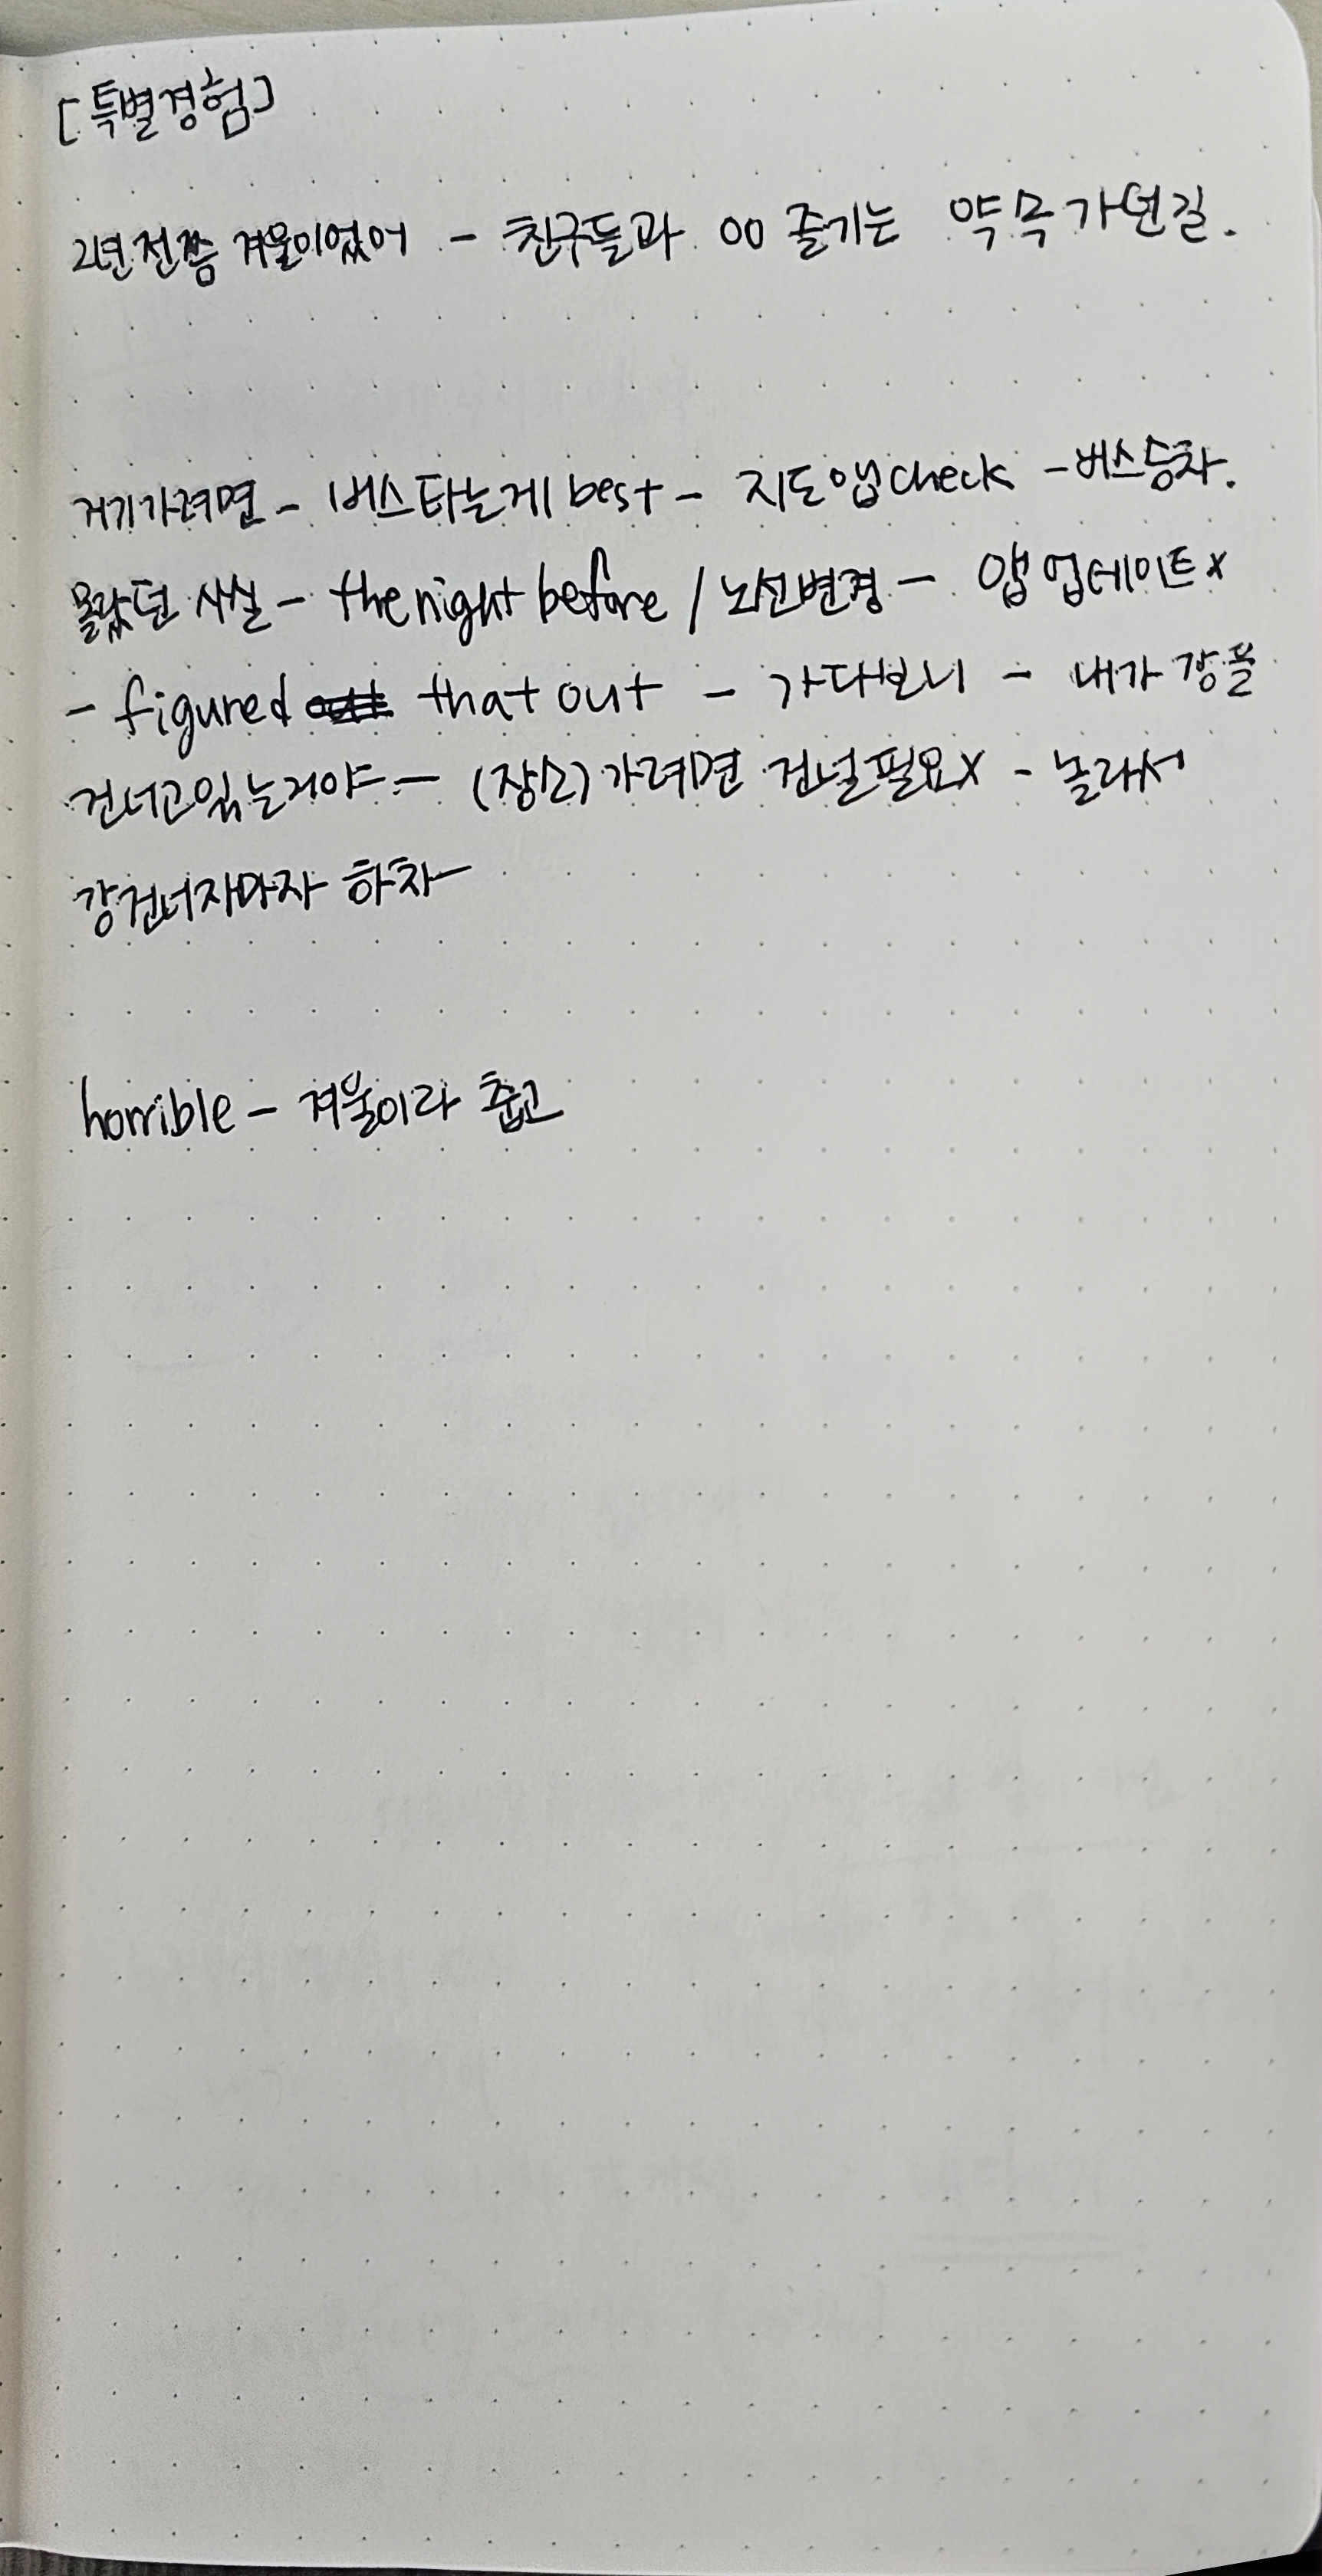 [특별경험]
2년전쯤 겨울이었어 - 친구들과 OO 즐기는 약속 가던길.
거기가려면 - 버스타는게 best - 지도앱 check - 버스승차.
몰랐던 사실 - the night before / 노선변경 - 앱 업데이트 x
- figured that out - 가다보니 - 내가 강을
건너고있는거야 - (장소) 가려면 건널필요X - 놀라서
강건너자마자 하차
horrible - 겨울이라 춥고